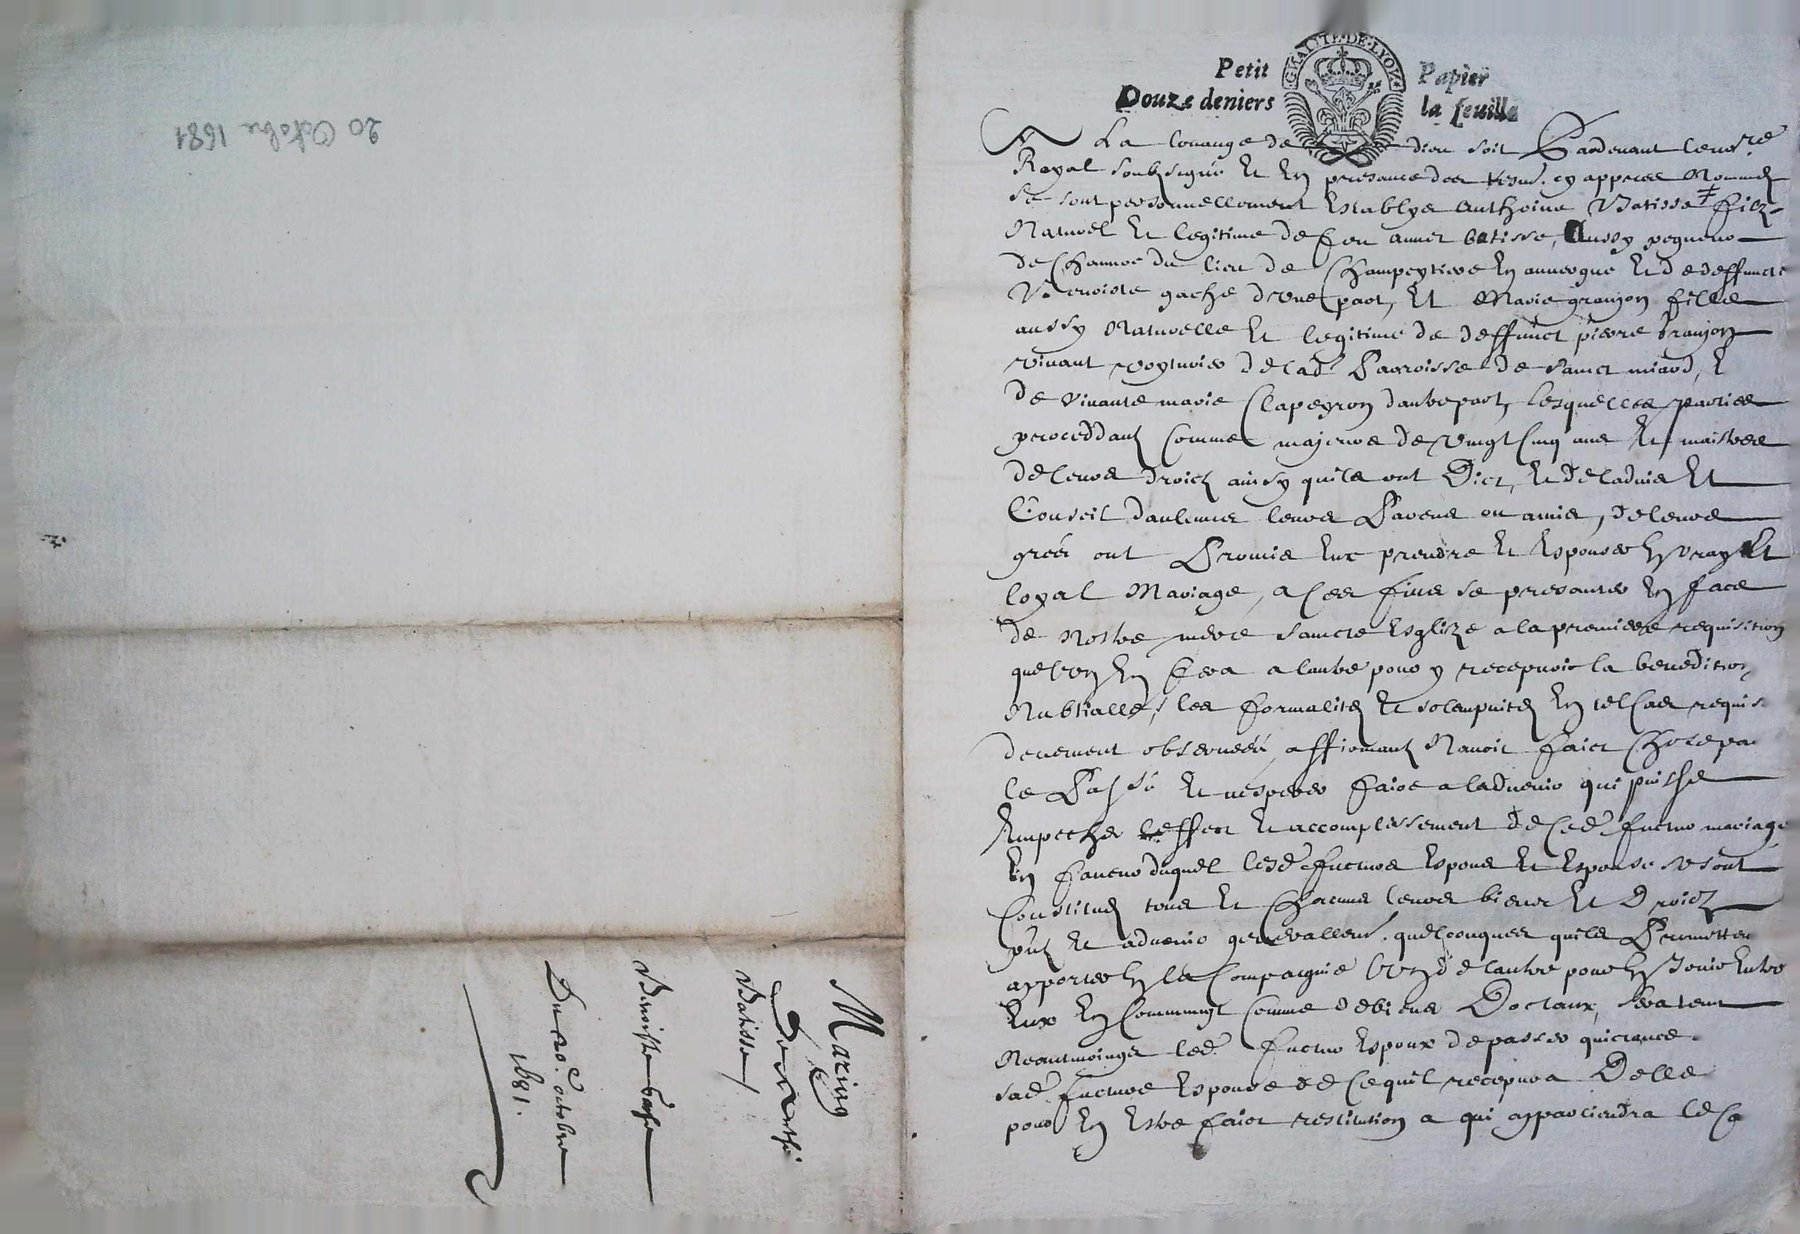 20 Octobre 1681
Mariage
Batisse
Du 20e. octobre
1681.
GNALITE·DE·LYON
Petit Papier
Douze deniers la feuille
A La louange de dieu soit Pardevant le no.re
Royal soubsigné Et En presance des tesm. cy appres Nommez
se sont personnellement Establys Anthoine Batisse ‡ filz
Naturel Et legitime de feu annet batisse, Aussy pegneur
de Chanvre du lieu de Champeytiere En auvergne Et de deffuncte
Benoiste gache d'Une part, Et Marie granjon fille
aussy Naturelle Et legitime de deffunct pierre Granjon
vivant voyturier de lad. Parroisse de sainct miard, E
de vivante marie Clapeyron dautre part, lesquelles parties
proceddant Comme majeurs de vingt Cinq ans Et maistres
de leurs droictz ainsy quils ont Dict, Et de ladvis Et
Conseil daulcuns leurs Parens ou amis, de leurs
gréés ont Promis Eux prendre Et Espouser En vray Et
loyal Mariage, a Ces fins se presanter En face
de Nostre mere saincte Esglize a la premiere requisition
que lun En fera a lautre pour y recepvoir la benedition
Nubtialle, les formalitez Et solempnitez En tel Cas requis
deuement observéés, affirmant Navoir faict Chose par
le Passé Et nesperer faire a ladvenir qui puisse
Empecher leffect Et accomplissement de Ced. futur mariage
En faveur duquel lesd. futurs Espoux Et Espouse se sont
Constitués tous Et Chacuns leurs biens Et Droictz
pntz Et advenir g[e]nerallem. quelconques quils Promettent
apporter En la Compaignie lun de lautre pour En Jouir Entre
Eux En Commung Comme de biens Doctaux, sera tenu
Neantmoings led. futur Espoux de passer quictance
sad. future Espouse de Ce quil recepvra Delle
pour En Estre faict restitution a qui appartiendra le Ca